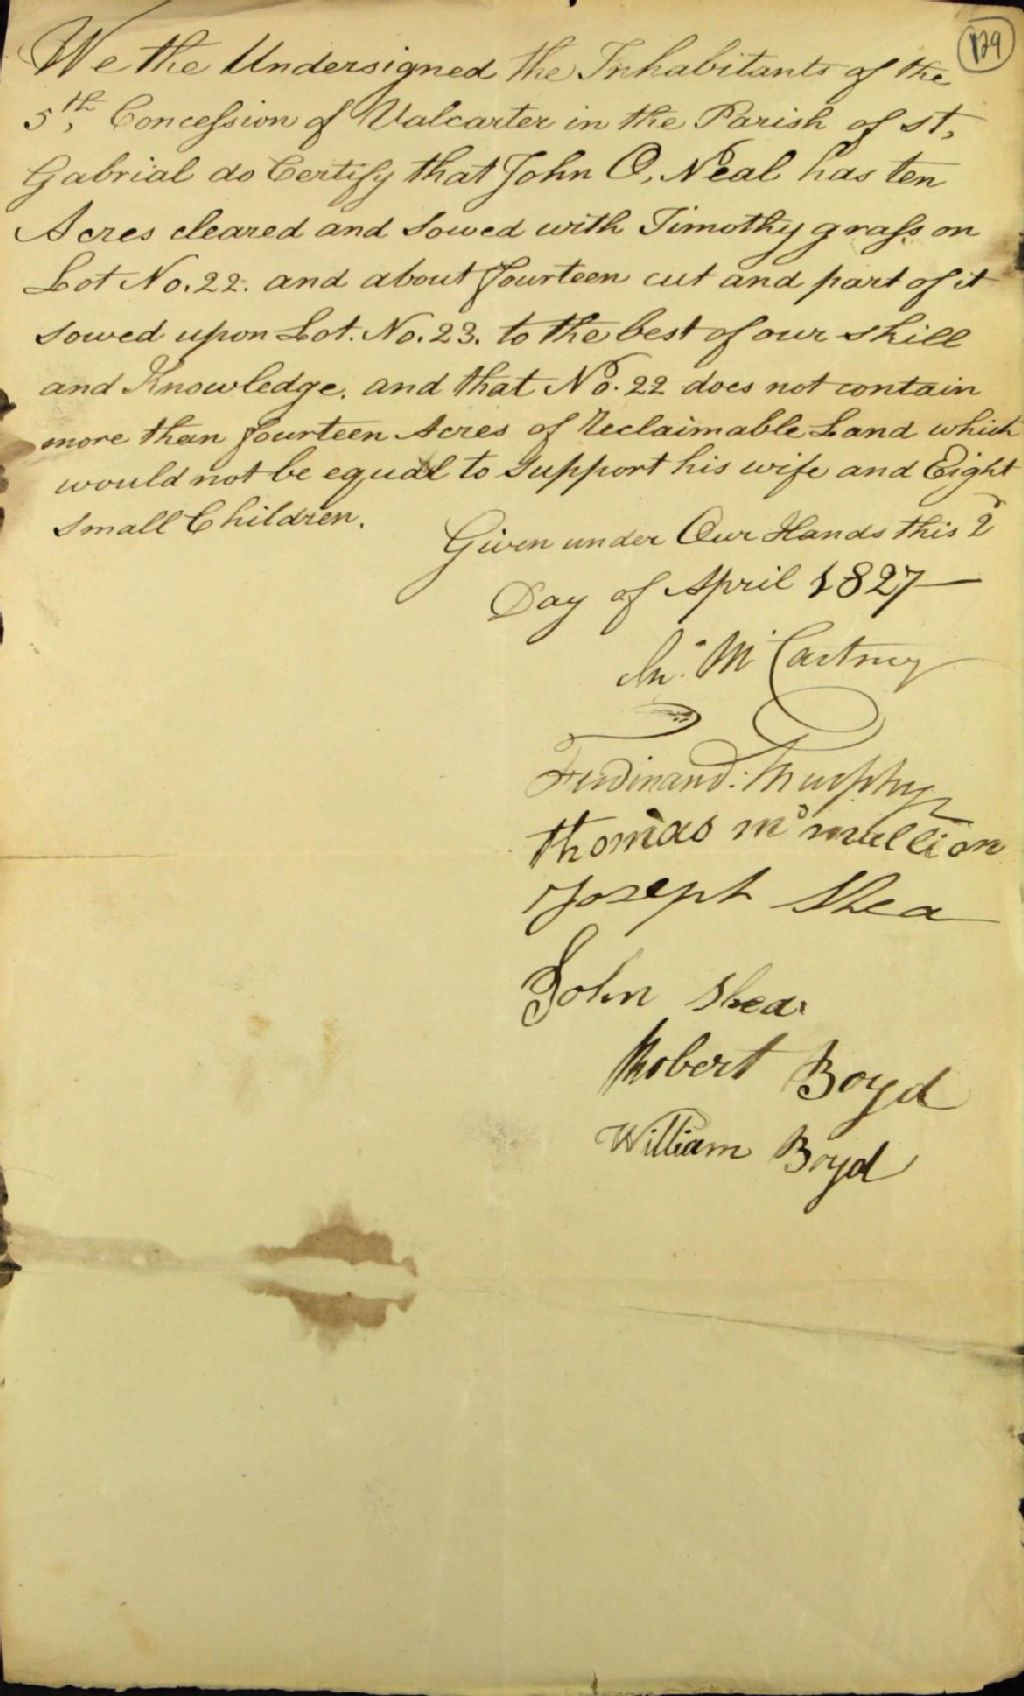 129
We the Undersigned the Inhabitants of the
5th, Concession of Valcarter in the Parish of St,
Gabrial do Certify that John O, Neal has ten
Acres cleared and Sowed with Timothy grass on
Lot No. 22. and about fourteen cut and part of it
Sowed upon Lot. No. 23. to the best of our Skill
and Knowledge. and that No. 22 does not contain
more than fourteen Acres of Reclaimable Land which
would not be equal to Support his wife and Eight
Small Children.
Given under Our Hands this 2d
Day of April 1827—
Jno. McCartney
Ferdinand. Murphy
thomas mc mullion
Joseph Shea
John Shea
Robert Boyd
William Boyd